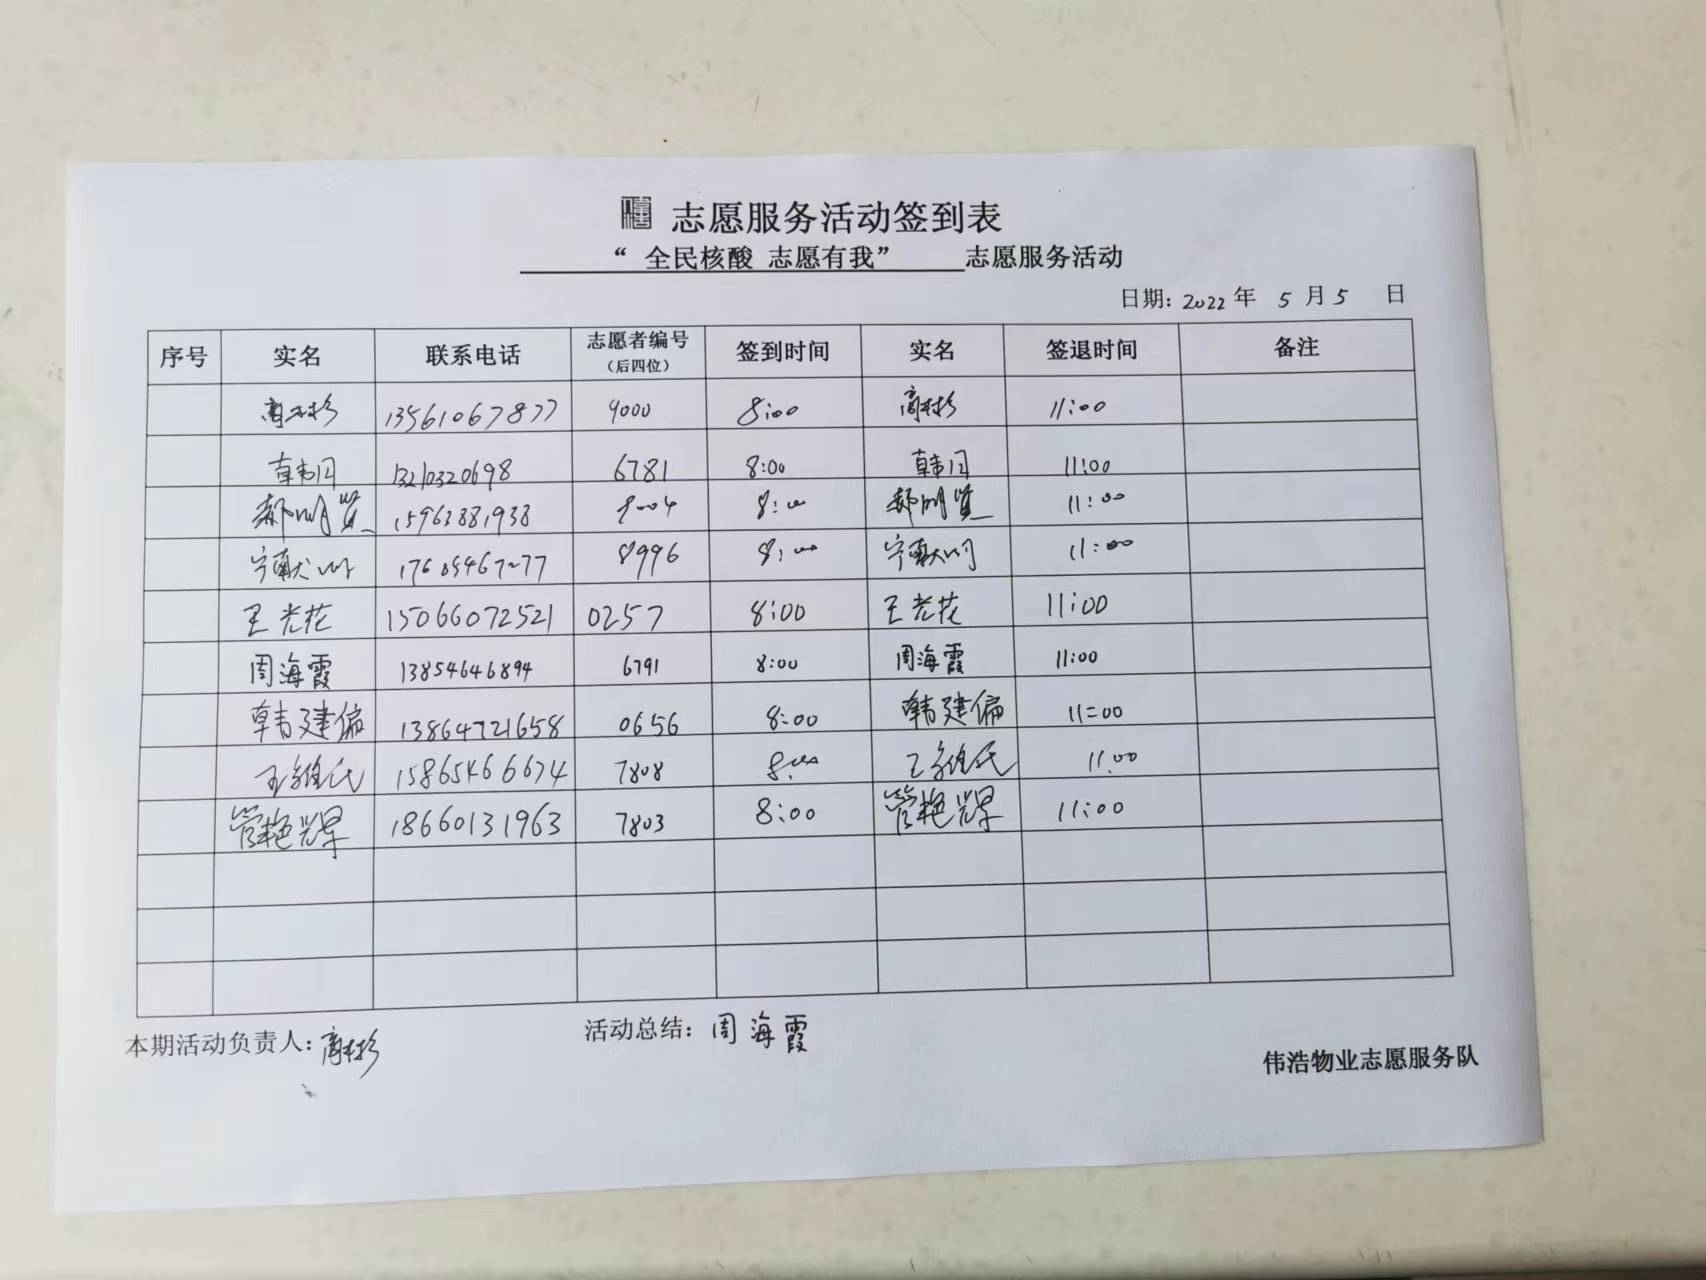 志愿服务活动签到表
“ 全民核酸 志愿有我” 志愿服务活动
日期: 2022 年 5 月 5 日
序号 实名 联系电话 志愿者编号（后四位） 签到时间 实名 签退时间 备注
高彬 13561067877 9000 8:00 高彬 11:00
韩闪 13210320698 6781 8:00 韩闪 11:00
郝明贤 15963881938 9004 8:00 郝明贤 11:00
宁献 8996 8:00 宁献 11:00
王光花 15066072521 0257 8:00 王光花 11:00
周海霞 13854646894 6791 8:00 周海霞 11:00
韩建偏 13864721658 0656 8:00 韩建偏 11:00
王维氏 15865466674 7808 8:00 王维氏 11:00
管艳翠 18660131963 7803 8:00 管艳翠 11:00
本期活动负责人: 高彬 活动总结: 周海霞
伟浩物业志愿服务队